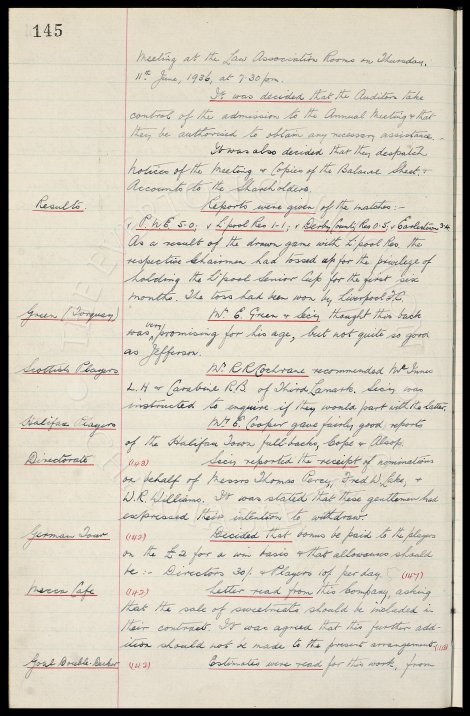 145
Meeting at the Law Association Rooms on Thursday,
11th June, 1936, at 7-30 p.m.
It was decided that the Auditors take
control of the admission to the Annual Meeting & that
they be authorised to obtain any necessary assistance.
It was also decided that they despatch
notices of the Meeting & Copies of the Balance Sheet &
Accounts to the Shareholders.
Results. Reports were given of the matches:-
v P.N.E. 5-0; v L'pool Res 1-1; v Derby County Res 0-5; v Earlestown 3-4
As a result of the drawn game with L'pool Res. the
respective Chairmen had tossed up for the privilege of
holding the L'pool Senior Cup for the first six
months. The toss had been won by Liverpool F.C.
Green (Torquay) Mr. E. Green & Secy. thought this back
was very promising for his age, but not quite so good
as Jefferson.
Scottish Players Mr. R.R. Cochrane recommended Mc Innes
L.H. & Carabine R.B. of Third Lanark. Secy. was
instructed to enquire if they would part with the latter.
Halifax Players Mr. E. Cooper gave fairly good reports
of the Halifax Town full backs, Cope & Alsop.
Directorate (143) Secy. reported the receipt of nominations
on behalf of Messrs Thomas Percy, Fred W. Lake, &
W.R. Williams. It was stated that these gentlemen had
expressed their intention to withdraw.
German Tour (142) Decided that bonus be paid to the players
on the £2 for a win basis & that allowances should
be:- Directors 30/- & Players 10/- per day. (147)
Mecca Cafe (142) Letter read from this Company, asking
that the sale of sweetmeats should be included in
their contract. It was agreed that this further add-
ition should not be made to the present arrangement.
Goal Double-Decker (142) Estimates were read for this work, from